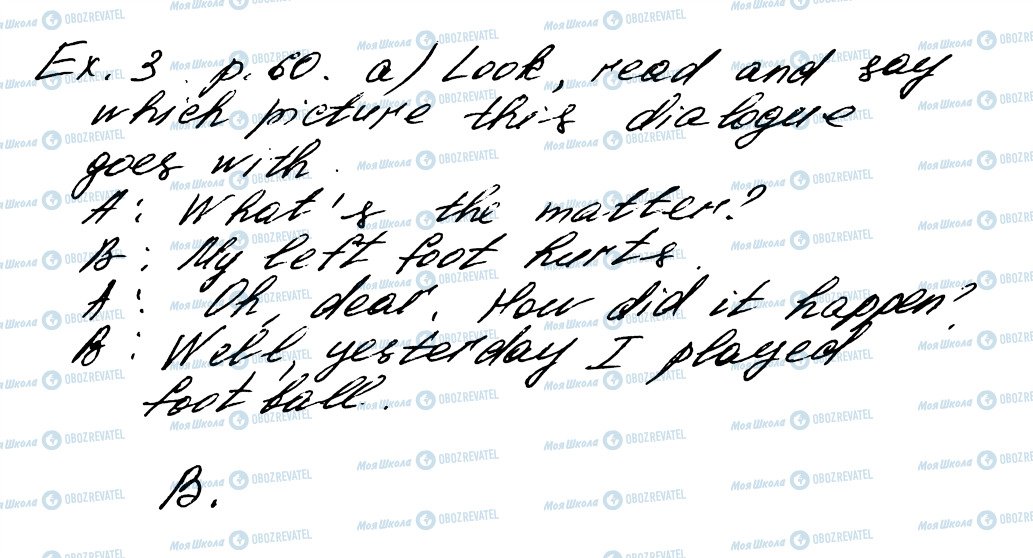 Ex. 3. p. 60. a) Look, read and say
which picture this dialogue
goes with.
A: What's the matter?
B: My left foot hurts.
A: Oh, dear. How did it happen?
B: Well, yesterday I played
football.
B.
Моя Школа OBOZREVATEL